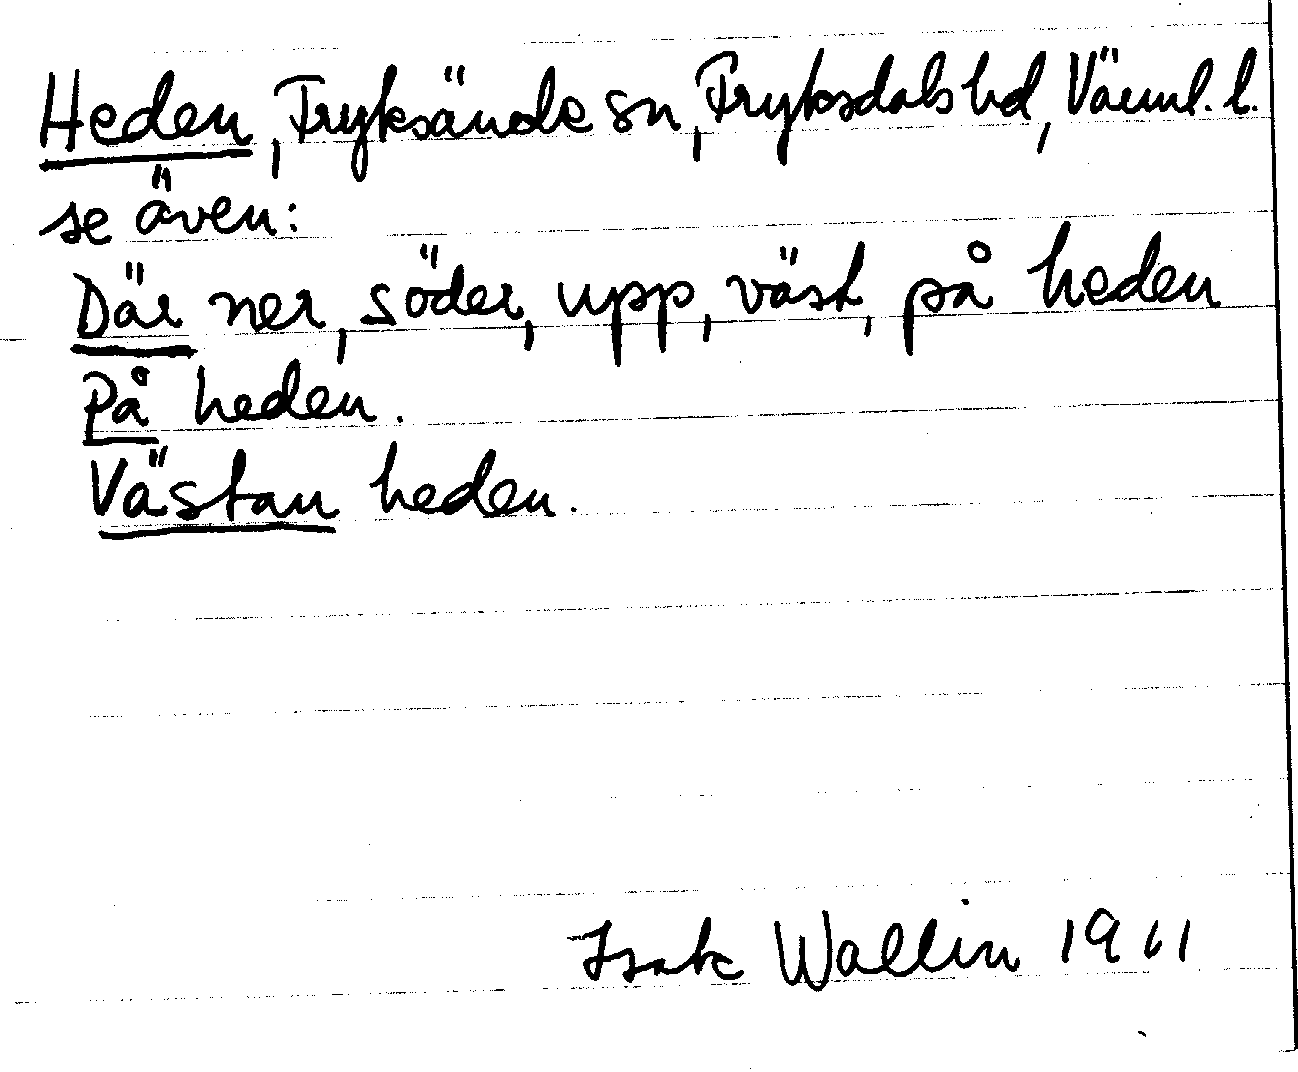 Heden, Fryksände sn, Fryksdals hd, Värml. l.
se även:
Där ner, söder, upp, väst, på heden
På heden.
Västan heden.
Isak Wallin 1911